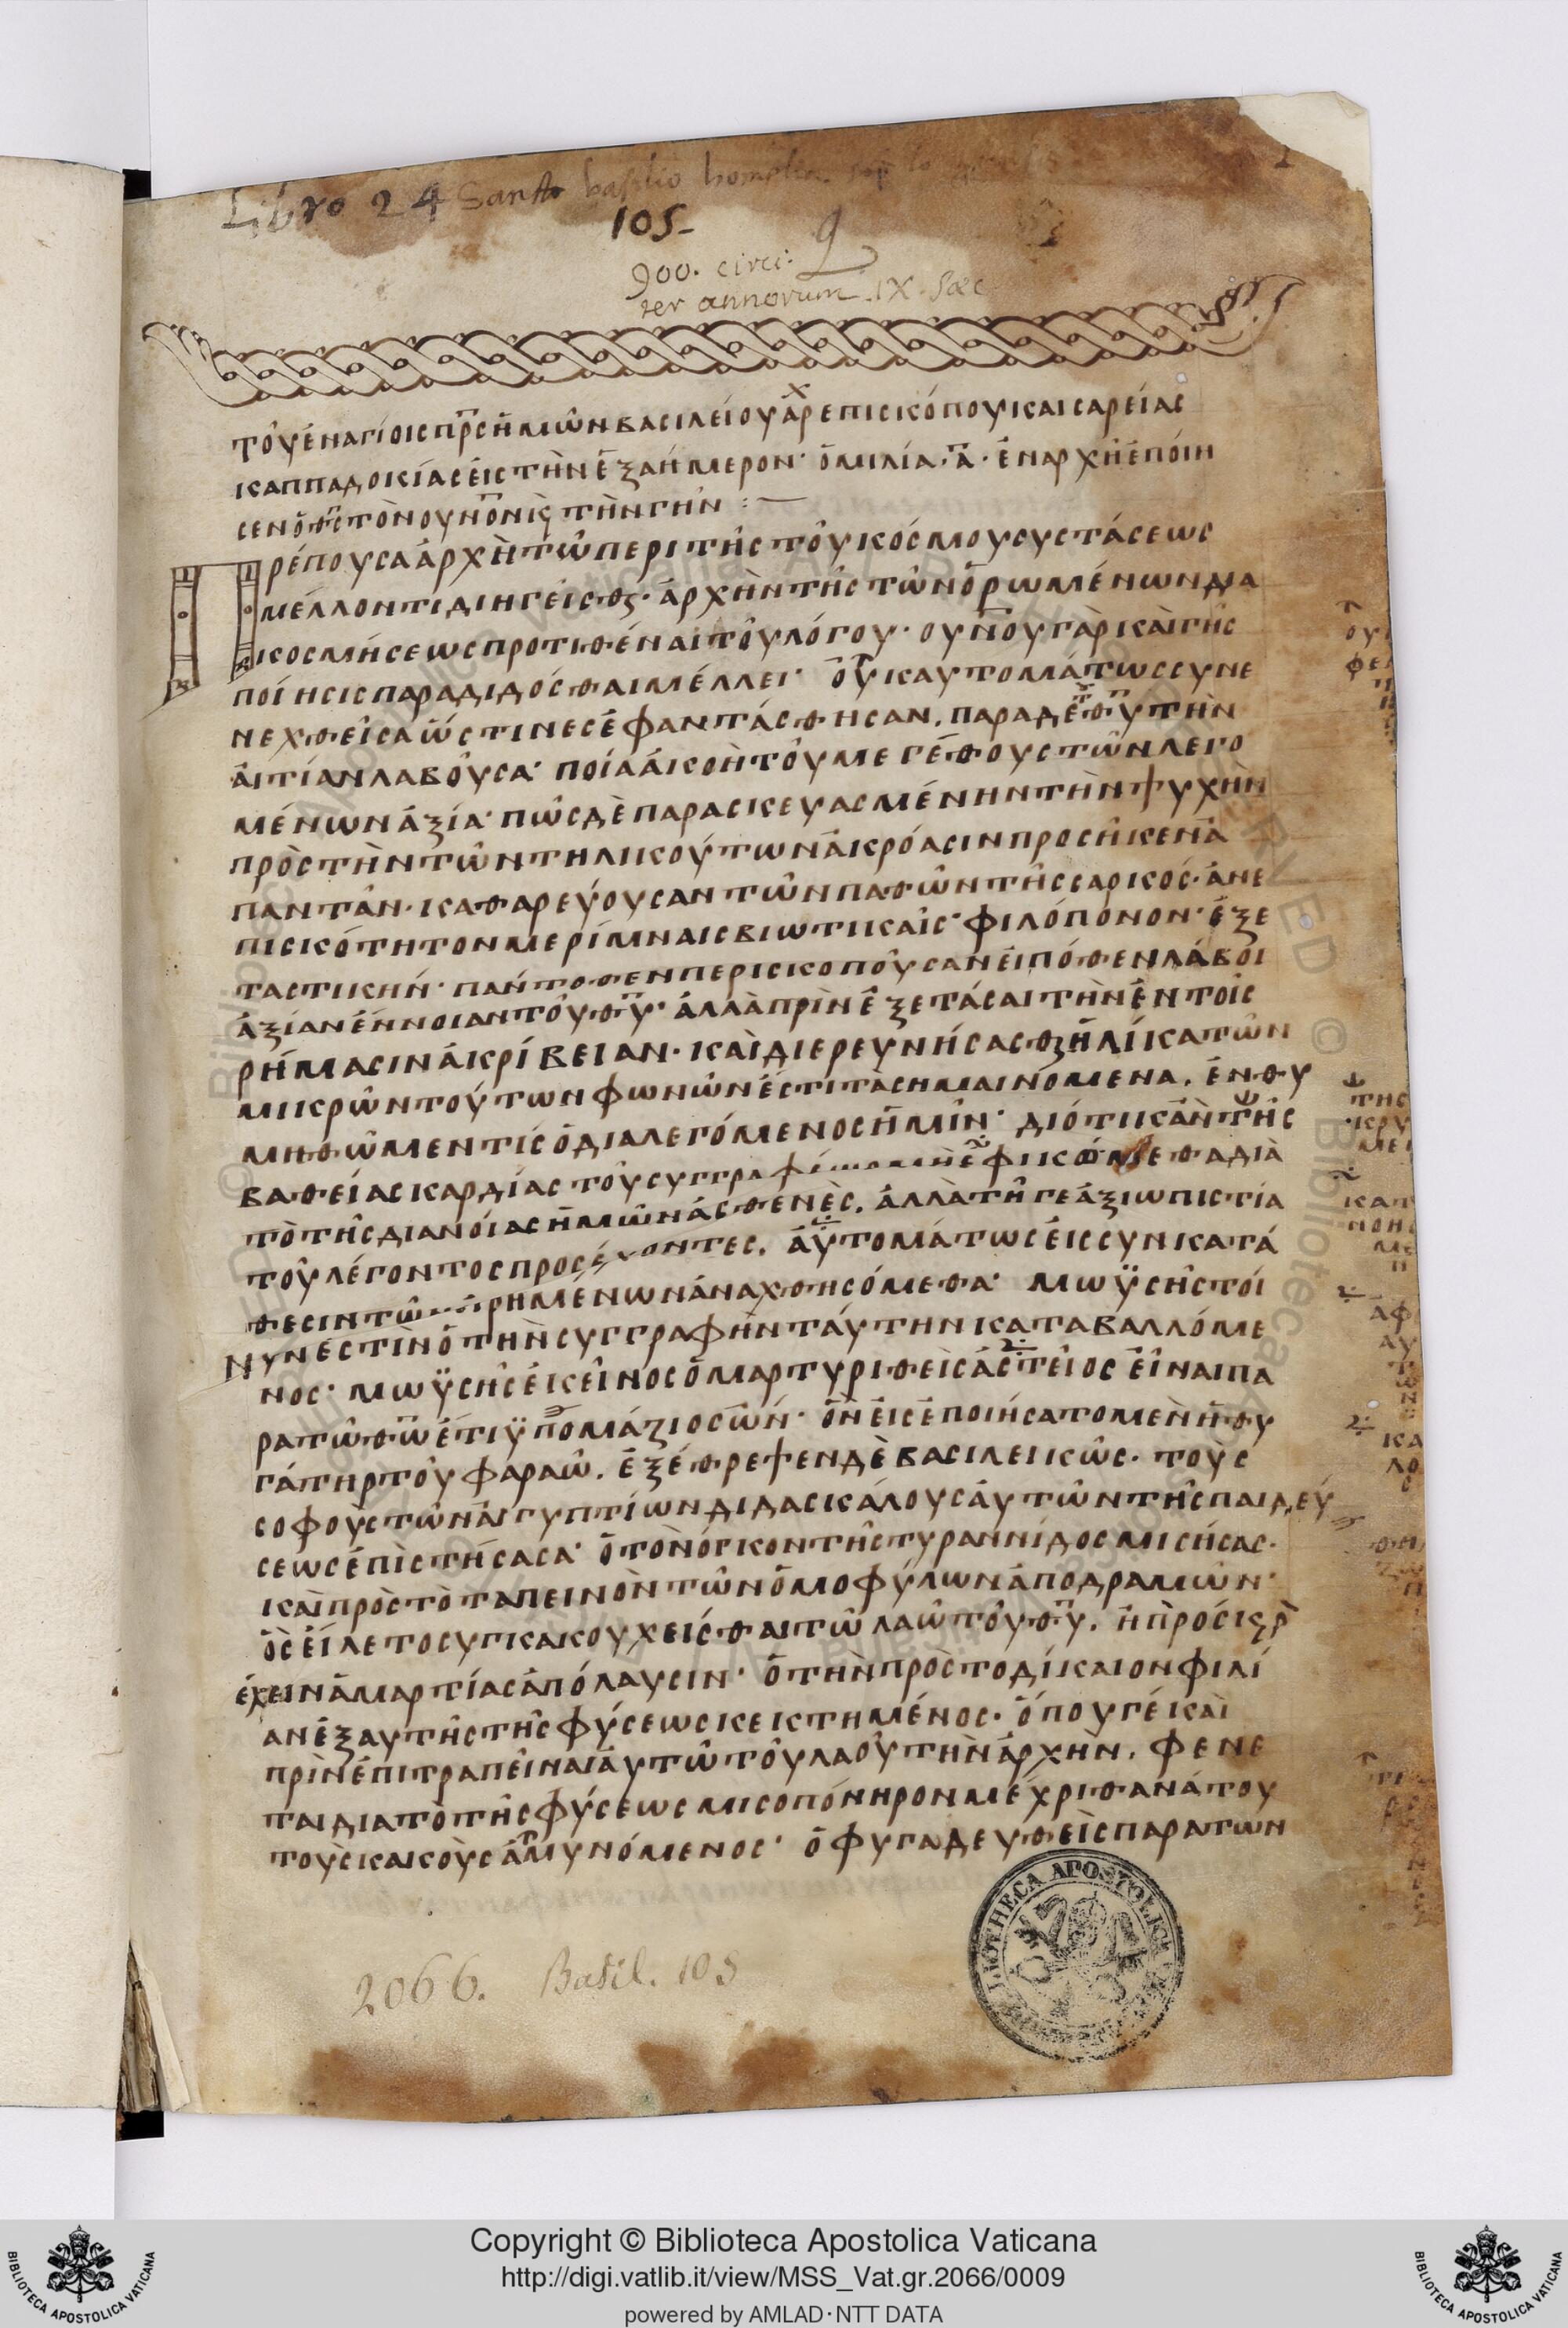 Libro 24 Santo basilio homelia
105-
9
900. circi:
ter annorum. IX. Sæc
τοῦ ἐν ἁγίοις πρς ἡμῶν βασιλείου ἀρχεπισκόπου καισαρείας
καππαδοκίας εἰς τὴν ἑξαήμερον· ὁμιλία· α· ἐν ἀρχῇ ἐποίη
σεν ὁ θς τὸν ουνον κ τὴν γῆν :—
Πρέπουσα ἀρχὴ τῶ περι τῆς τοῦ κόσμου συστάσεως
μέλλοντι διηγεῖσθς· ἀρχὴν τῆς τῶν ὁρωμένων δια
κοσμήσεως προτιθέναι τοῦ λόγου· ουνου γὰρ καὶ γῆς
ποίησις παραδιδόσθαι μέλλει· οὐκ αυτομάτως συνε
νεχθεῖσα ὥς τινες ἐφαντάσθησαν. παρα δὲ θυ τὴν
ἀιτίαν λαβοῦσα· ποία ἀκοὴ τοῦ μεγέθους τῶν λεγο
μένων ἀξία· πῶς δὲ παρασκευασμένην τὴν ψυχὴν
πρὸς τὴν τῶν τηλικούτων ἀκρόασιν προσῆκεν ἀ
παντᾶν· καθαρεύουσαν τῶν παθῶν τῆς σαρκός· ἀνε
πισκότητον μερίμναις βιωτικαῖς· φιλόπονον· ἐξε
ταστικήν· πάντοθεν περισκοποῦσαν εἰ πόθεν λάβοι
ἀξίαν ἔννοιαν τοῦ θυ· ἀλλὰ πρὶν ἐξετάσαι τὴν ἐν τοῖς
ρήμασιν ἀκρίβειαν· καὶ διερευνήσασθ ἡλίκα τῶν
μικρῶν τούτων φωνῶν ἐστι τὰ σημαινόμενα. ἐνθυ
μηθῶμεν τίς ὁ διαλεγόμενος ἡμῖν· διότι κἂν τῆς
βαθείας καρδίας τοῦ συγγρα μὴ ἐφικόμεθα διὰ
τὸ τῆς διανοίας ἡμῶν ἀσθενὲς. ἀλλὰ τῆ γε ἀξιωπιστία
τοῦ λέγοντος προσέχοντες. ἀυτομάτως εἰς συνκατά
θεσιν τῶν εἰρημένων ἀναχθησόμεθα· μωϋσῆς τοί
νυν ἐστὶν ὁ τὴν συγγραφὴν ταύτην καταβαλλόμε
νος· μωϋσῆς ἐκεῖνος ὁ μαρτυριθεὶς ἀστεῖος εἶναι πα
ρα τῶ θω ἔτι ϋπομάζιος ὤν· ὃν εἰσεποιήσατο μὲν ἡ θυ
γάτηρ τοῦ φαραῶ. ἐξέθρεψεν δὲ βασιλεικῶς· τοὺς
σοφοὺς τῶν ἀιγυπτίων διδασκάλους ἀυτῶν τῆς παιδεύ
σεως ἐπιστήσασα· ὁ τὸν ὄγκον τῆς τυραννίδος μισήσας·
καὶ πρὸς τὸ ταπεινὸν τῶν ὁμοφύλων ἀποδραμὼν·
ὃς εἵλετο συγκακουχεῖσθαι τῶ λαῶ τοῦ θυ. ἢ πρόσκρ
ἔχειν ἁμαρτίας ἀπόλαυσιν· ὁ τὴν πρὸς το δίκαιον φιλί
αν ἐξ αυτῆς τῆς φύσεως κεκτημένος· ὅπου γε καὶ
πρὶν ἐπιτραπεῖναι ἀυτῶ τοῦ λαοῦ τὴν ἀρχὴν. φενε
ται δια τὸ τῆς φύσεως μισοπόνηρον μέχρι θανάτου
τους κακοὺς ἀμυνόμενος· ὁ φυγαδευθεὶς παρα των
2066. Basil. 105
Copyright © Biblioteca Apostolica Vaticana
http://digi.vatlib.it/view/MSS_Vat.gr.2066/0009
powered by AMLAD·NTT DATA
BIBLIOTECA APOSTOLICA VATICANA
BIBLIOTECA APOSTOLICA VATICANA